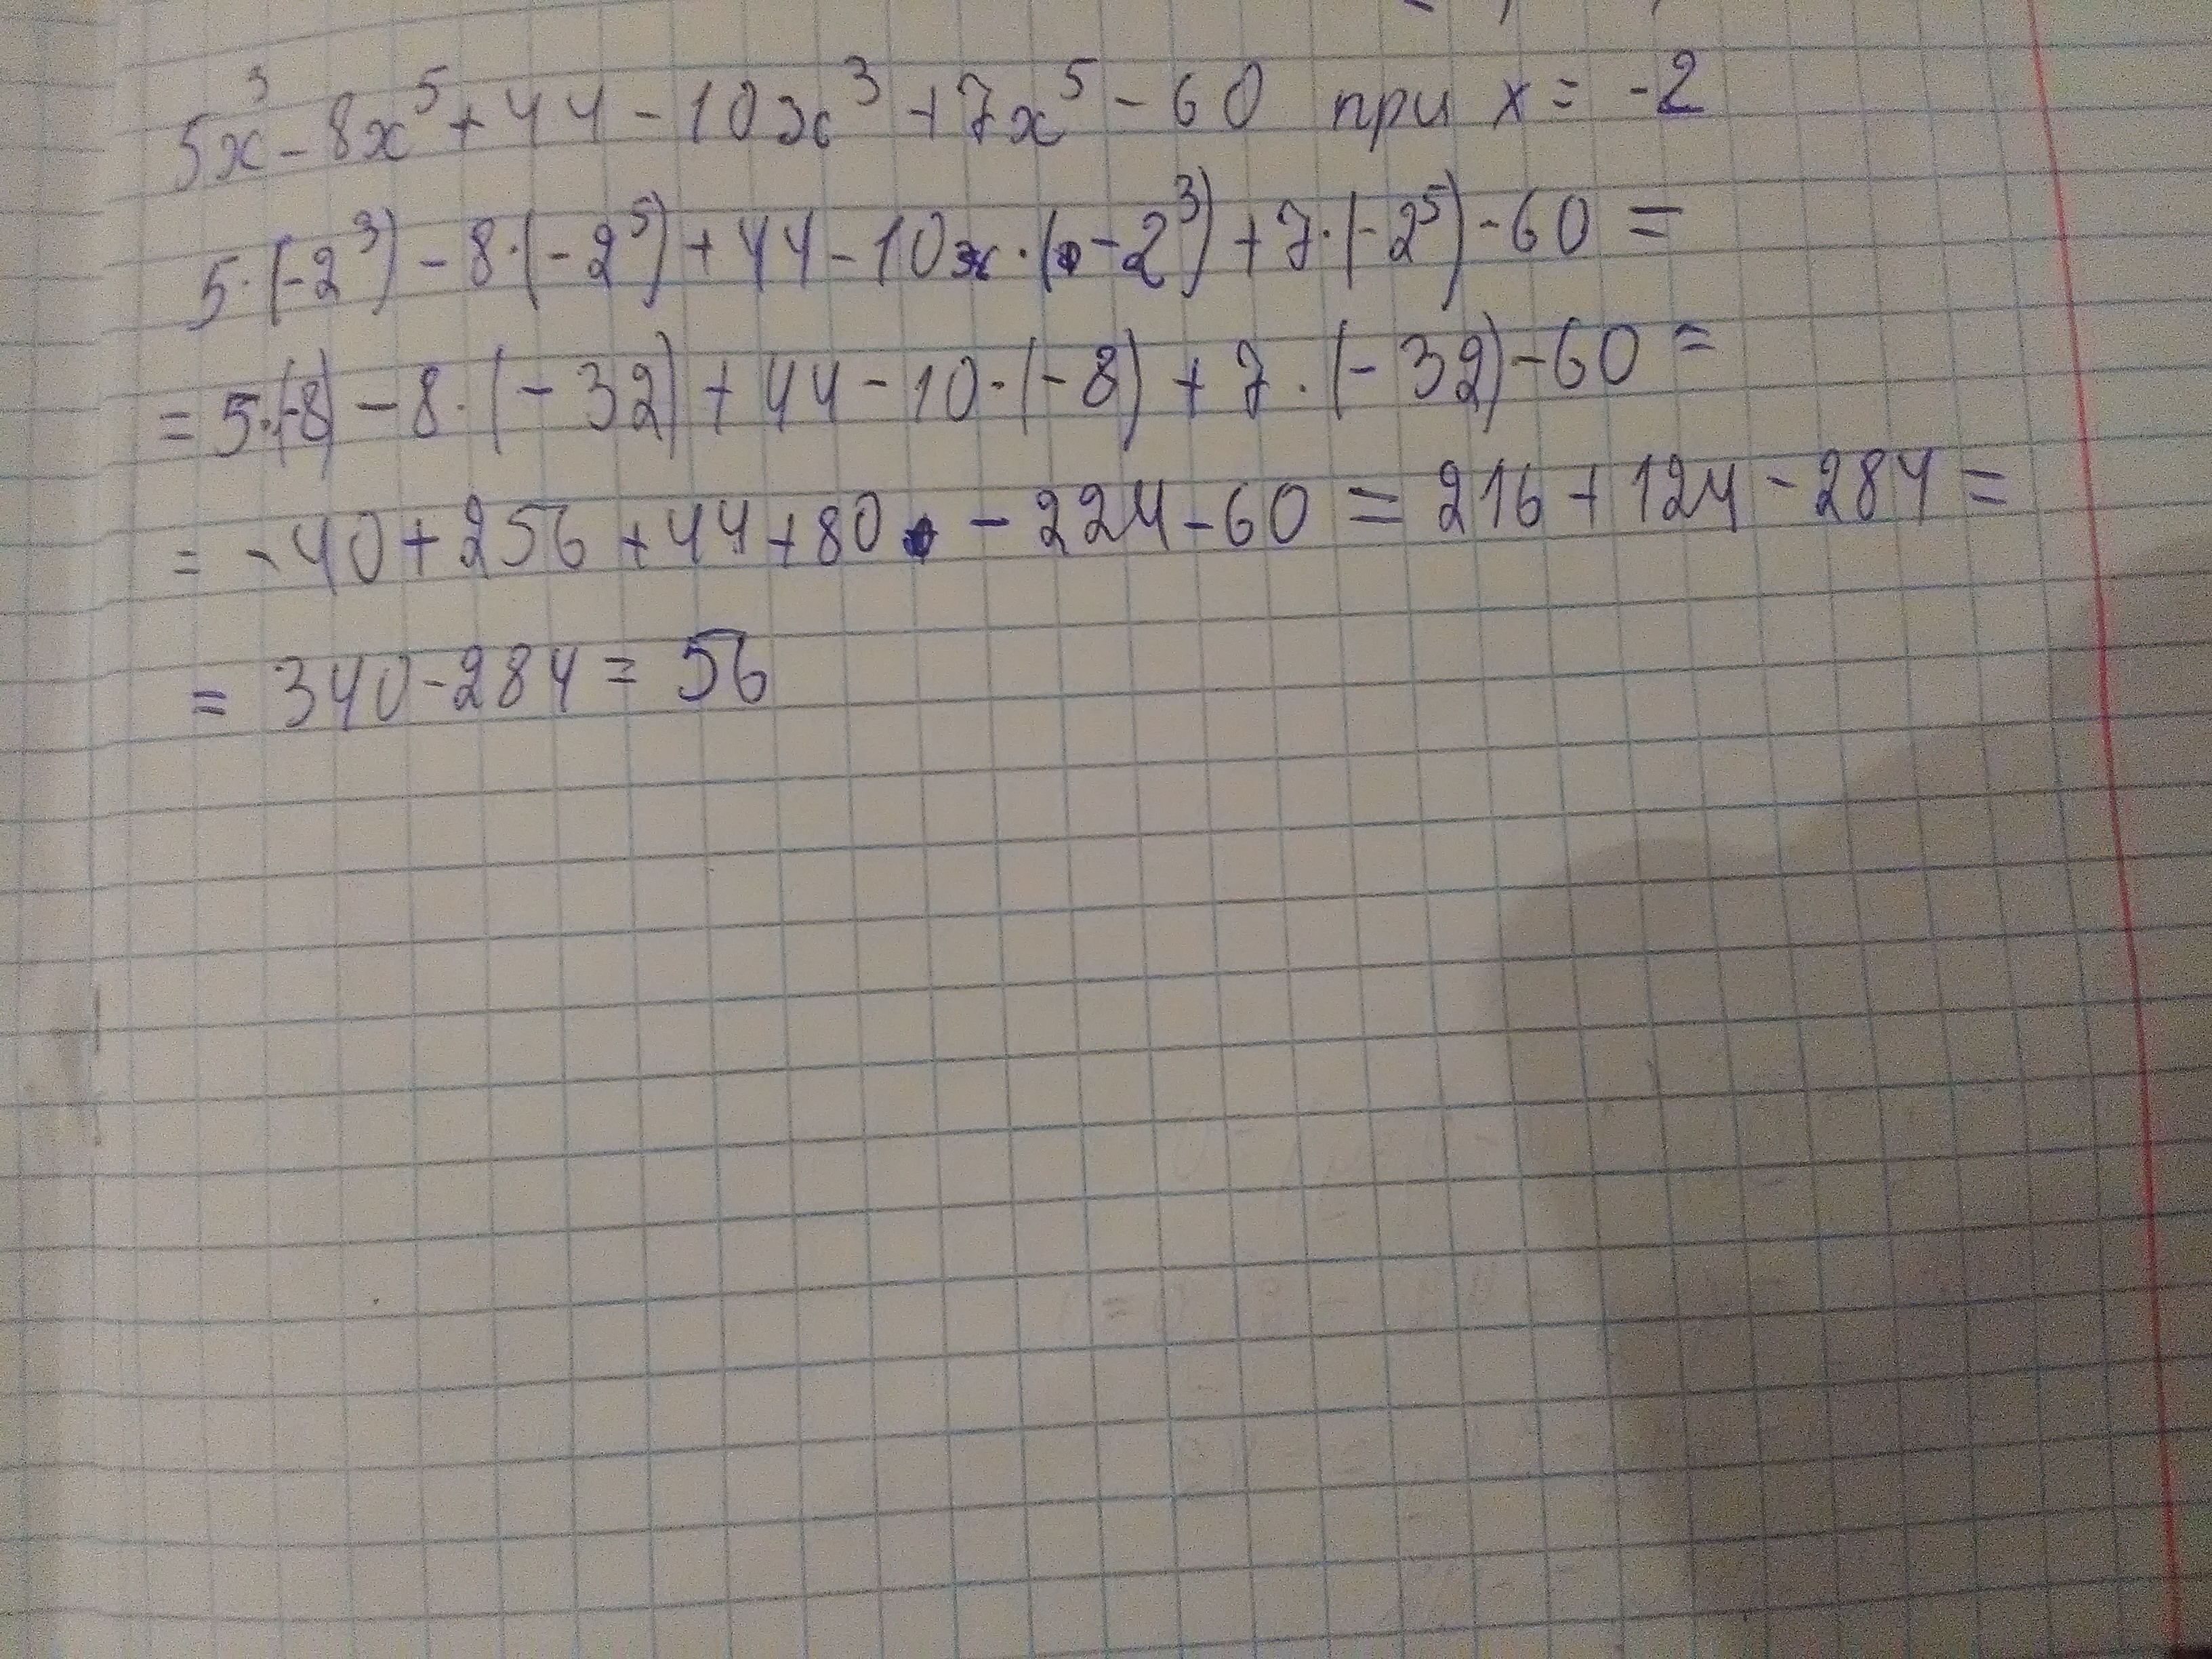 5x³ - 8x⁵ + 44 - 10x³ + 7x⁵ - 60 при x = -2
5·(-2³) - 8·(-2⁵) + 44 - 10·(-2³) + 7·(-2⁵) - 60 =
= 5·(-8) - 8·(-32) + 44 - 10·(-8) + 7·(-32) - 60 =
= -40 + 256 + 44 + 80 - 224 - 60 = 216 + 124 - 284 =
= 340 - 284 = 56